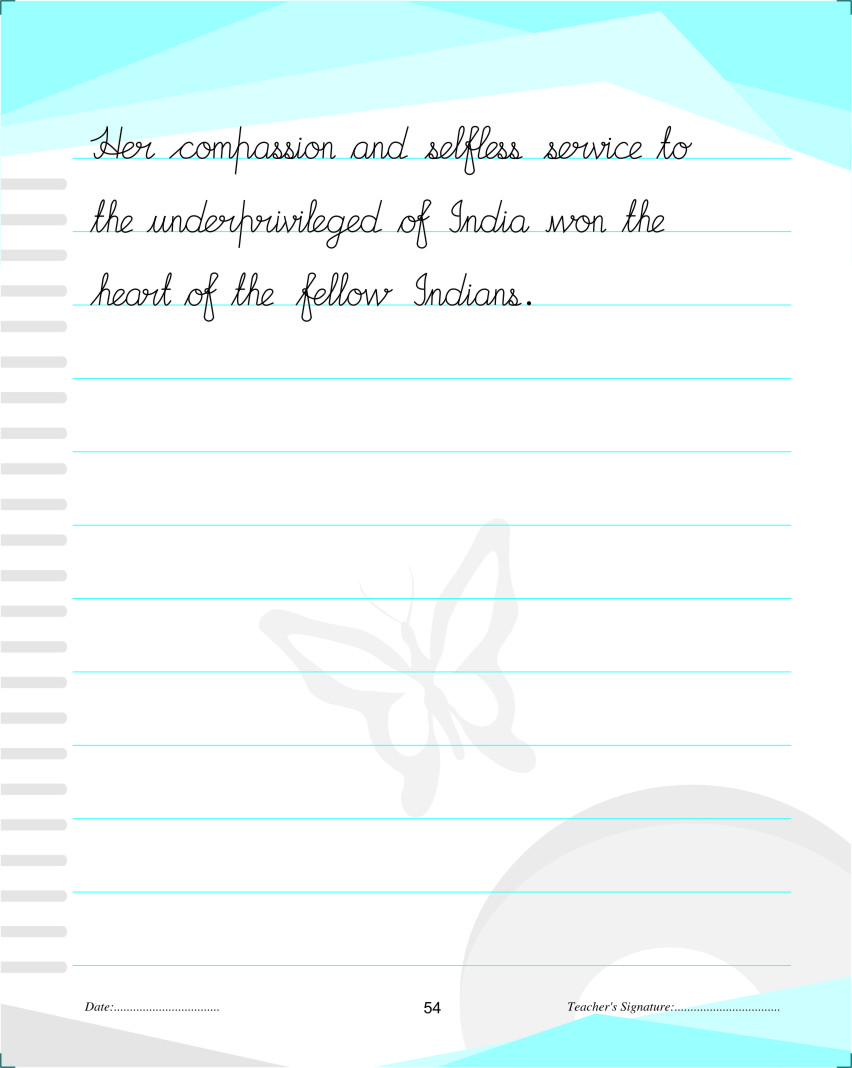 Her compassion and selfless service to
the underprivileged of India won the
heart of the fellow Indians.
Date:................................. 54 Teacher's Signature:.................................